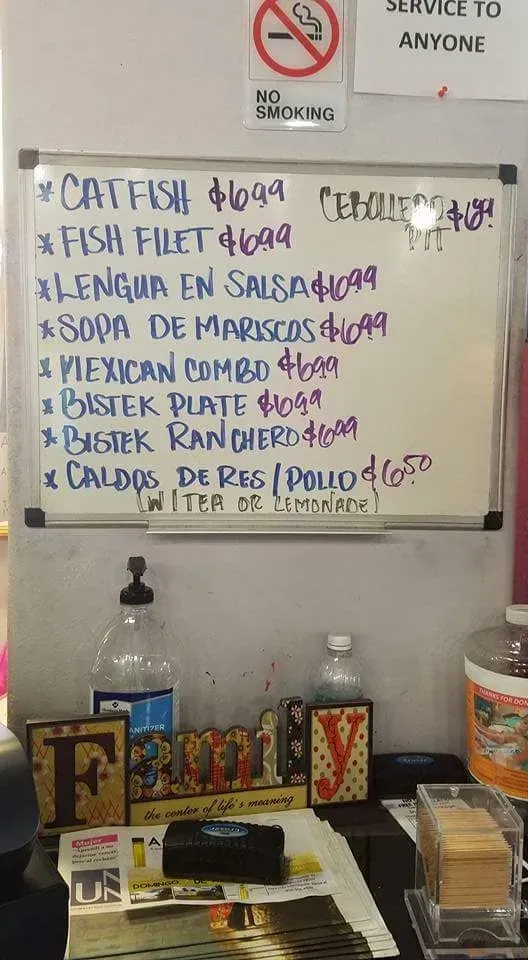 SERVICE TO
ANYONE
NO
SMOKING
* CATFISH $6.99
CEBOLLERO $6.99
* FISH FILET $6.99
* LENGUA EN SALSA $6.99
* SOPA DE MARISCOS $6.99
* MEXICAN COMBO $6.99
* BISTEK PLATE $6.99
* BISTEK RANCHERO $6.99
* CALDOS DE RES/POLLO $6.50
(W/TEA OR LEMONADE)
Family
the center of life's meaning
THANKS FOR DON
Mujer
UN
DOMINGO